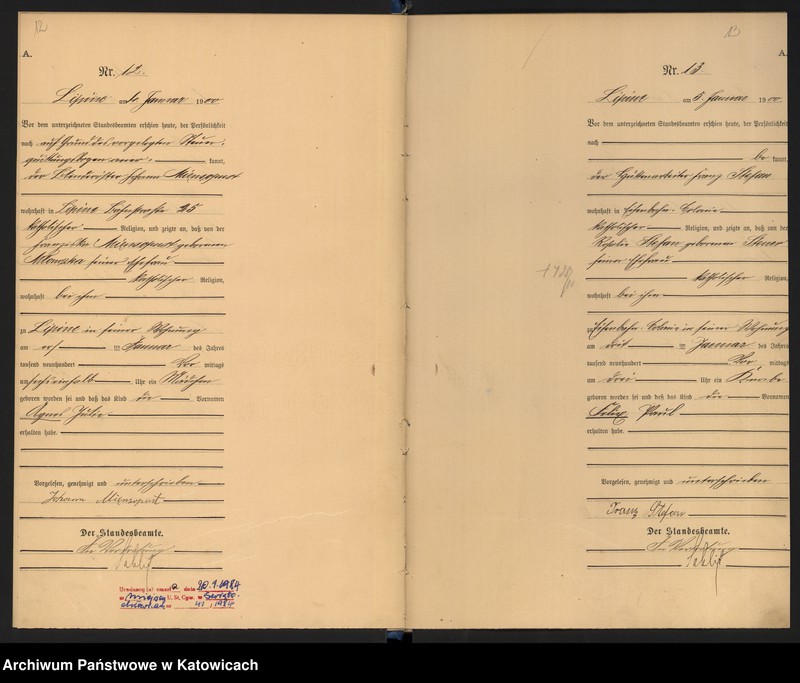 12
A.
Nr. 12.
Lipine am 4. Januar 1900
Vor dem unterzeichneten Standesbeamten erschien heute, der Persönlichkeit
nach auf Grund des vorgelegten Steuer-
kannt,
der Johann Miensopust
wohnhaft in Lipine Bahnstraße 25
katholischer Religion, und zeigte an, daß von der
Franziska Miensopust geborenen
seiner Ehefrau
katholischer Religion,
wohnhaft bei ihm
zu Lipine in seiner Wohnung
am ersten Januar des Jahres
tausend neunhundert Vor mittags
um sechseinhalb Uhr ein Mädchen
geboren worden sei und daß das Kind die Vornamen
Agnes Julie
erhalten habe.
Vorgelesen, genehmigt und unterschrieben
Johann Miensopust
Der Standesbeamte.
In Vertretung
Urodzony(a) zmarł a dnia 20.1.1984
w U. St. Cyw. w
41/1984
13
A.
Nr. 13
Lipine am 5. Januar 1900
Vor dem unterzeichneten Standesbeamten erschien heute, der Persönlichkeit
nach
be kannt,
der Hüttenarbeiter Franz Stefan
wohnhaft in Eisenbahn-Colonie
katholischer Religion, und zeigte an, daß von der
Rosalie Stefan geborenen
seiner Ehefrau
katholischer Religion,
wohnhaft bei ihm
zu Eisenbahn-Colonie in seiner Wohnung
am Januar des Jahres
tausend neunhundert Vor mittags
um drei Uhr ein Knabe
geboren worden sei und daß das Kind die Vornamen
Felix Paul
erhalten habe.
Vorgelesen, genehmigt und unterschrieben
Franz Stefan
Der Standesbeamte.
In Vertretung
Archiwum Państwowe w Katowicach